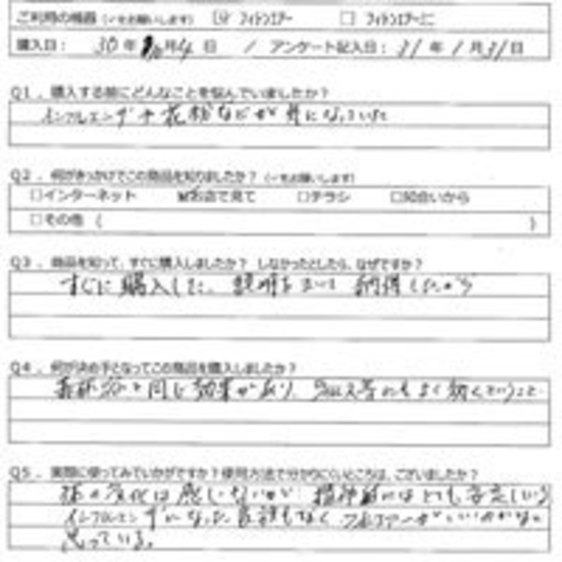 ご利用の機器（✓をお願いします） ☑ フィトンエアー □ フィトンエアーミニ
購入日： 30年 月4日 / アンケート記入日：31年1月31日
Q1．購入する前にどんなことを悩んでいましたか？
インフルエンザや花粉などが気になっていた
Q2．何がきっかけでこの商品を知りましたか？（✓をお願いします）
□インターネット ☑お店で見て □チラシ □知合いから
□その他（ ）
Q3．商品を知って、すぐに購入しましたか？ しなかったとしたら、なぜですか？
すぐに購入した。説明をきいて納得したから
Q4．何が決め手となってこの商品を購入しましたか？
と同じ効果があり、 等にもよく効くということ
Q5．実際に使ってみていかがですか？使用方法で分かりにくいところは、ございましたか？
の変化は感じないが 精神的にはとても安定している
インフルエンザになった家族もなく がいいのかなと
思っている。